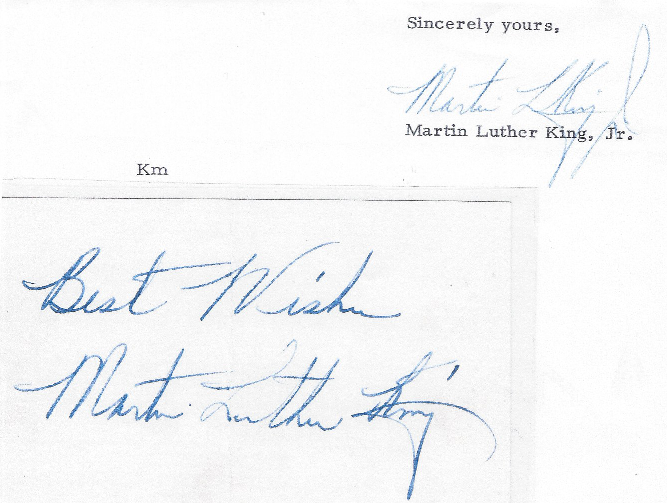 Sincerely yours,
Martin L King Jr
Martin Luther King, Jr.
Km
Best Wishes
Martin Luther King